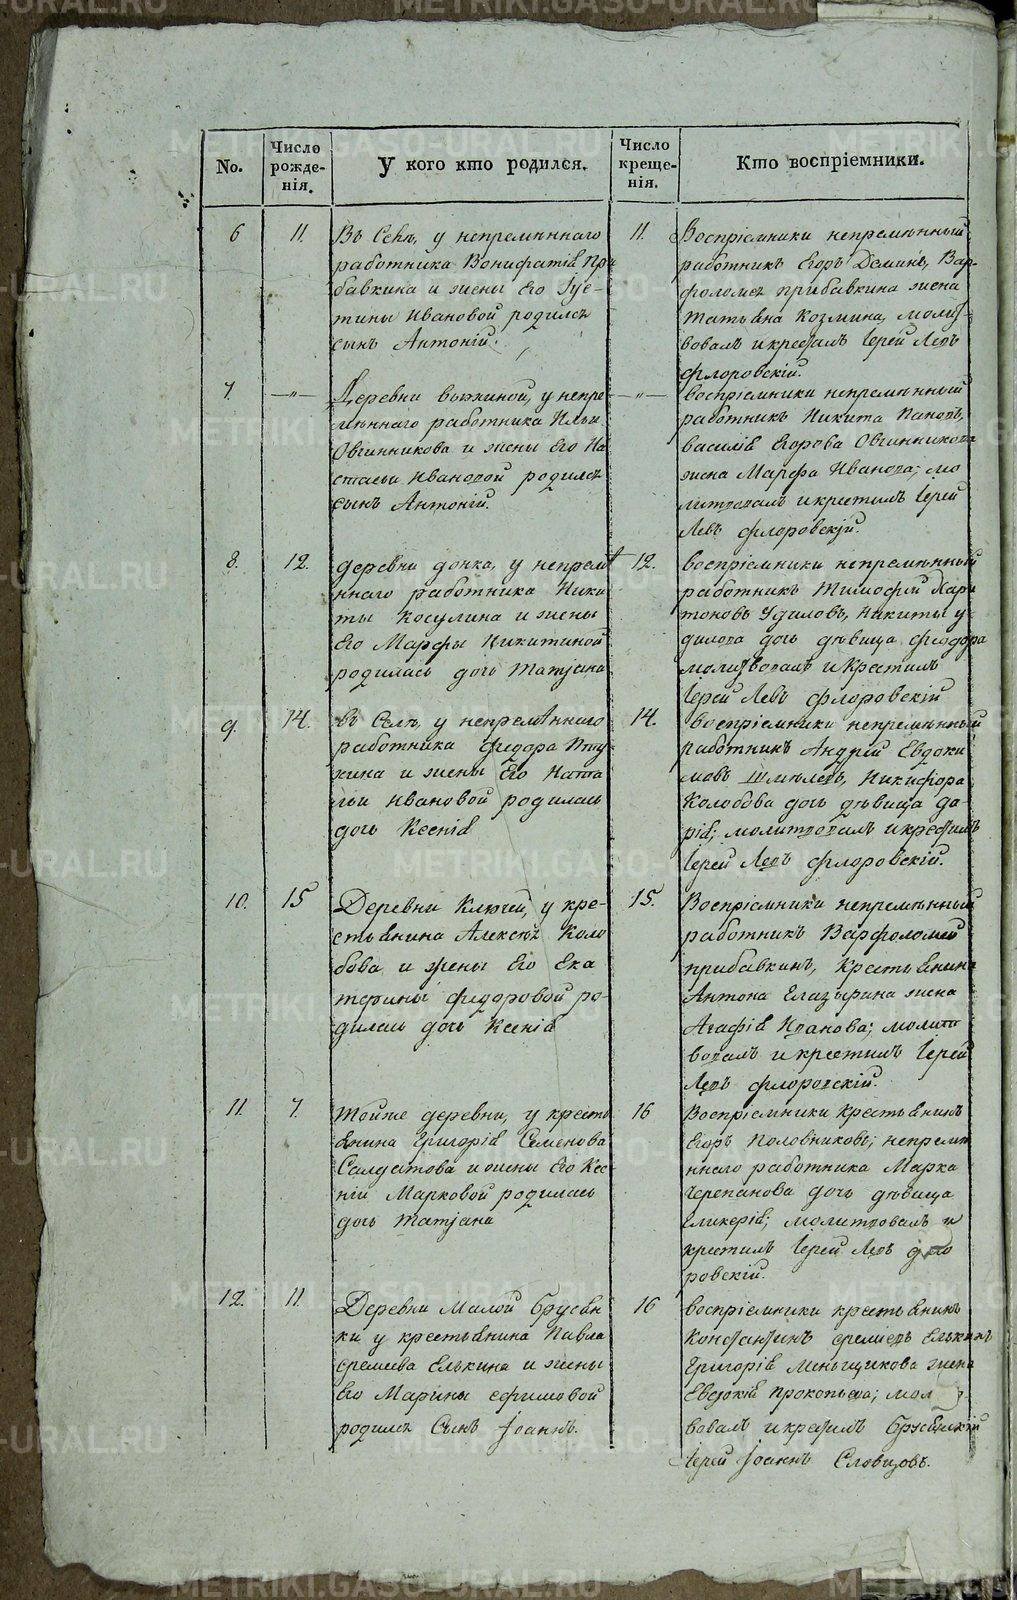 No.
Число рожде-нія.
У кого кто родился.
Число креще-нія.
Кто воспріемники.
6
11.
Въ Селѣ, у непремѣннаго
работника Вонифатія При
бавкина и жены Его Іус-
тины Ивановой родился
сынъ Антоній.
11.
Воспріемники непремѣнный
работникъ Егоръ Деминъ, Вар-
фоломея прибавкина жена
Татьяна Козмина, молит-
вовалъ и крестилъ Іерей Левъ
флоровскій.
7.
—„—
Деревни выхиной, у непре
мѣннаго работника Ильи
Овчинникова и жены Его На
стасьи Ивановой родился
сынъ Антоній.
—„—
воспріемники непремѣнный
работникъ Никита Пановъ,
василія Егорова Овчинникова
жена Марфа Иванова; мо
литвовалъ и крестилъ Іерей
Левъ флоровскій.
8.
12.
деревни донка, у непремѣ
ннаго работника Ники
ты Косулина и жены
Его Марфы Никитиной
родилась дочь Татіана
12.
воспріемники непремѣнный
работникъ Тимофей Хари
тоновъ Удиловъ, Никиты у
дилова дочь дѣвица феодора
молитвовалъ и Крестилъ
Іерей Левъ флоровскій
9.
14.
въ Селѣ, у непремѣннаго
работника федора Пту
хина и жены Его Ната
льи Ивановой родилась
дочь Ксенія
14.
воспріемники непремѣнный
работникъ Андрей Евдоки
мовъ Шмелевъ, Никифора
Колобова дочь дѣвица да-
рія; молитвовалъ и крестилъ
Іерей Левъ флоровскій.
10.
15
Деревни Ключей, у кре-
стьянина Алексѣя Коло
бова и жены Его Ека
терины федоровой ро-
дилась дочь Ксенія
15.
Воспріемники непремѣнный
работникъ Варфоломей
прибавкинъ, Крестьянина
Антона Елизырина жена
Агафія Иванова; молит
вовалъ и крестилъ Іерей
Левъ флоровскій.
11.
7.
Тойже деревни, у кресть
янина Григорія Семенова
Салдатова и жены Его Ксе-
ніи Марковой родилась
дочь Татіана
16
Воспріемники Крестьянинъ
Егоръ Половниковъ; непремѣ
ннаго работника Марка
Черепанова дочь дѣвица
Гликерія; молитвовалъ и
крестилъ Іерей Левъ фло
ровскій.
12.
11.
Деревни Малой Брусян
ки у крестьянина Павла
еремеева Елькина и жены
Его Марины ефимовой
родился Сынъ Іоаннъ.
16
воспріемники крестьянинъ
Константинъ еремеевъ Елькинъ
Григорія Меньщикова жена
Евдокія прокопьева; молит
вовалъ и крестилъ Брусянскій
Іерей Іоаннъ Словцовъ.
METRIKI.GASO-URAL.RU